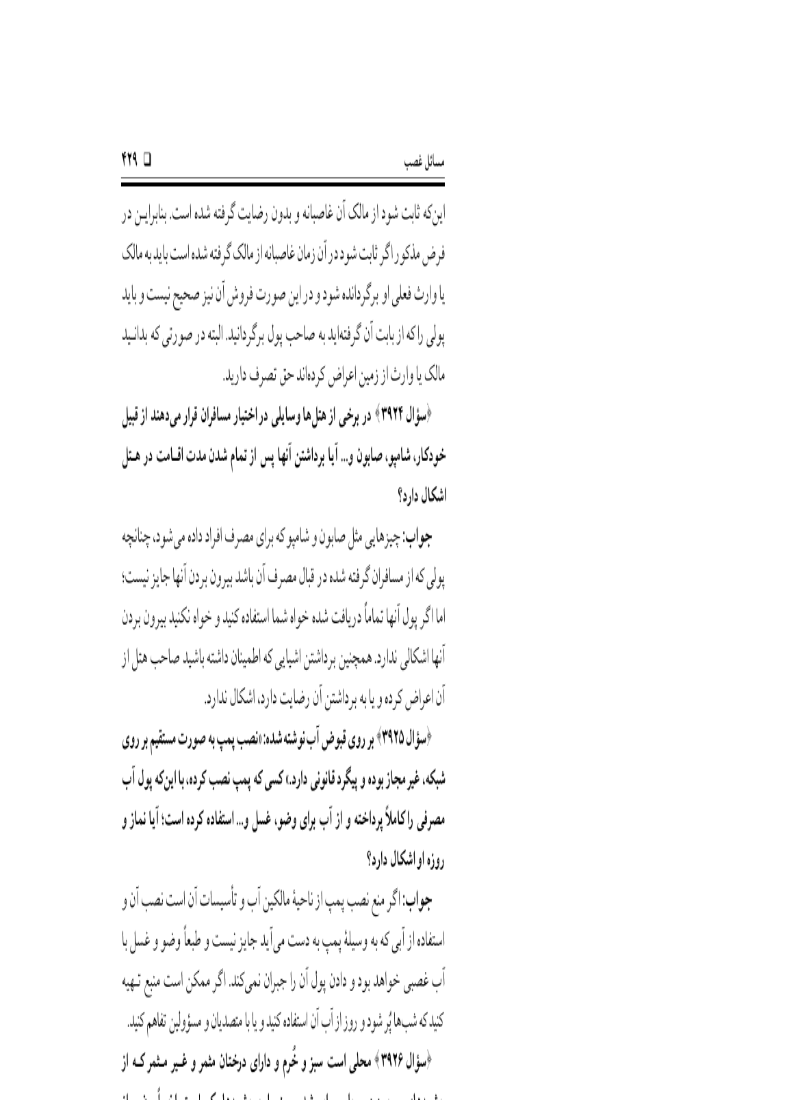 مسائل غصب ❏ ۴۲۹
این‌که ثابت شود از مالک آن غاصبانه و بدون رضایت گرفته شده است. بنابراین در
فرض مذکور اگر ثابت شود در آن زمان غاصبانه از مالک گرفته شده است باید به مالک
یا وارث فعلی او برگردانده شود و در این صورت فروش آن نیز صحیح نیست و باید
پولی را که از بابت آن گرفته‌اید به صاحب پول برگردانید. البته در صورتی که بدانید
مالک یا وارث از زمین اعراض کرده‌اند حق تصرف دارید.
﴿سؤال ۳۹۲۴﴾ در برخی از هتل‌ها وسایلی در اختیار مسافران قرار می‌دهند از قبیل
خودکار، شامپو، صابون و... آیا برداشتن آنها پس از تمام شدن مدت اقامت در هتل
اشکال دارد؟
جواب: چیزهایی مثل صابون و شامپو که برای مصرف افراد داده می‌شود، چنانچه
پولی که از مسافران گرفته شده در قبال مصرف آن باشد بیرون بردن آنها جایز نیست؛
اما اگر پول آنها تماماً دریافت شده خواه شما استفاده کنید و خواه نکنید بیرون بردن
آنها اشکالی ندارد. همچنین برداشتن اشیایی که اطمینان داشته باشید صاحب هتل از
آن اعراض کرده و یا به برداشتن آن رضایت دارد، اشکال ندارد.
﴿سؤال ۳۹۲۵﴾ بر روی قبوض آب نوشته شده: «نصب پمپ به صورت مستقیم بر روی
شبکه، غیر مجاز بوده و پیگرد قانونی دارد.» کسی که پمپ نصب کرده، با این‌که پول آب
مصرفی را کاملاً پرداخته و از آب برای وضو، غسل و... استفاده کرده است؛ آیا نماز و
روزه او اشکال دارد؟
جواب: اگر منع نصب پمپ از ناحیۀ مالکین آب و تأسیسات آن است نصب آن و
استفاده از آبی که به وسیلۀ پمپ به دست می‌آید جایز نیست و طبعاً وضو و غسل با
آب غصبی خواهد بود و دادن پول آن را جبران نمی‌کند. اگر ممکن است منبع تهیه
کنید که شب‌ها پُر شود و روز از آب آن استفاده کنید و یا با متصدیان و مسؤولین تفاهم کنید.
﴿سؤال ۳۹۲۶﴾ محلی است سبز و خُرم و دارای درختان مثمر و غیر مثمر که از